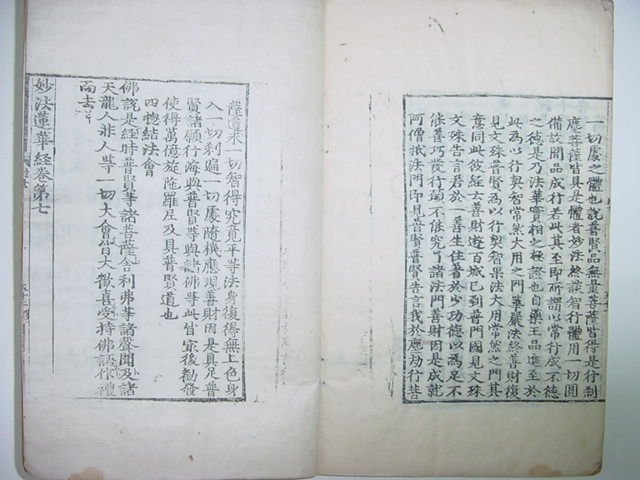 一切處之體也說普賢品無量菩薩皆得是行刹
塵菩薩皆具是體者妙法終談智行體用一切圓
備故聞品成行若此其至即所謂以常行成不德
之德是乃法華實相之極證也自藥王品進至於
此爲以行契智常然大用之門華嚴法終善財復
見文殊普賢爲以行契智果法大用常然之門其
意同此彼經云善財遊百城已到普門國見文殊
文殊告言若於一善生住著於少功德以爲足不
能善巧發行願不能究了諸法門善財因是成就
阿僧祇法門即見普賢普賢告言我於應劫行菩
薩道來一切智得究竟平等法身復得無上色身
入一切刹遍一切處隨機應現善財因是具足普
賢諸願行海與普賢等與諸佛等此皆最後勸發
使得萬億旋陁羅尼及具普賢道也
四捴結法會
佛說是經時普賢等諸菩薩舍利弗等諸聲聞及諸
天龍人非人等一切大會皆大歡喜受持佛語作禮
而去
妙法蓮華經卷第七